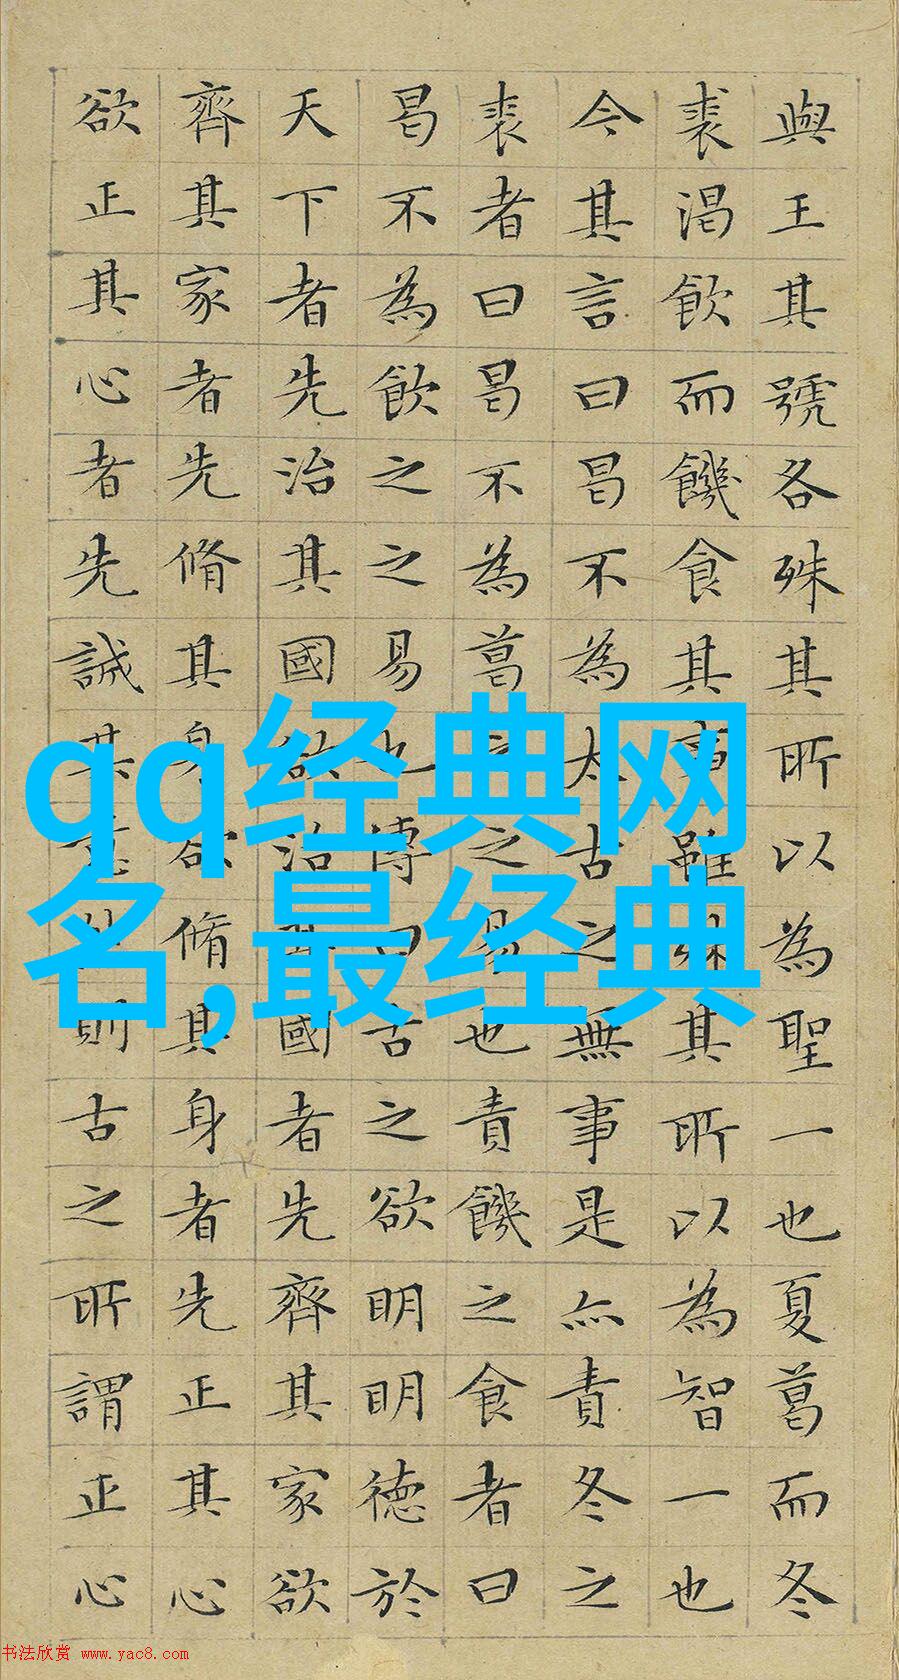 與王其號各殊其所以為聖一也夏葛而冬
裘渴飲而饑食其事雖殊其所以為智一也
今其言曰曷不為太古之無事是亦責冬之
裘者曰曷不為葛之之易也責饑之食者曰
曷不為飲之之易也傳曰古之欲明明德於
天下者先治其國欲治其國者先齊其家欲
齊其家者先脩其身欲脩其身者先正其心
欲正其心者先誠其意然則古之所謂正心
qq经典网
名,最经典
书法欣赏 www.yac8.com